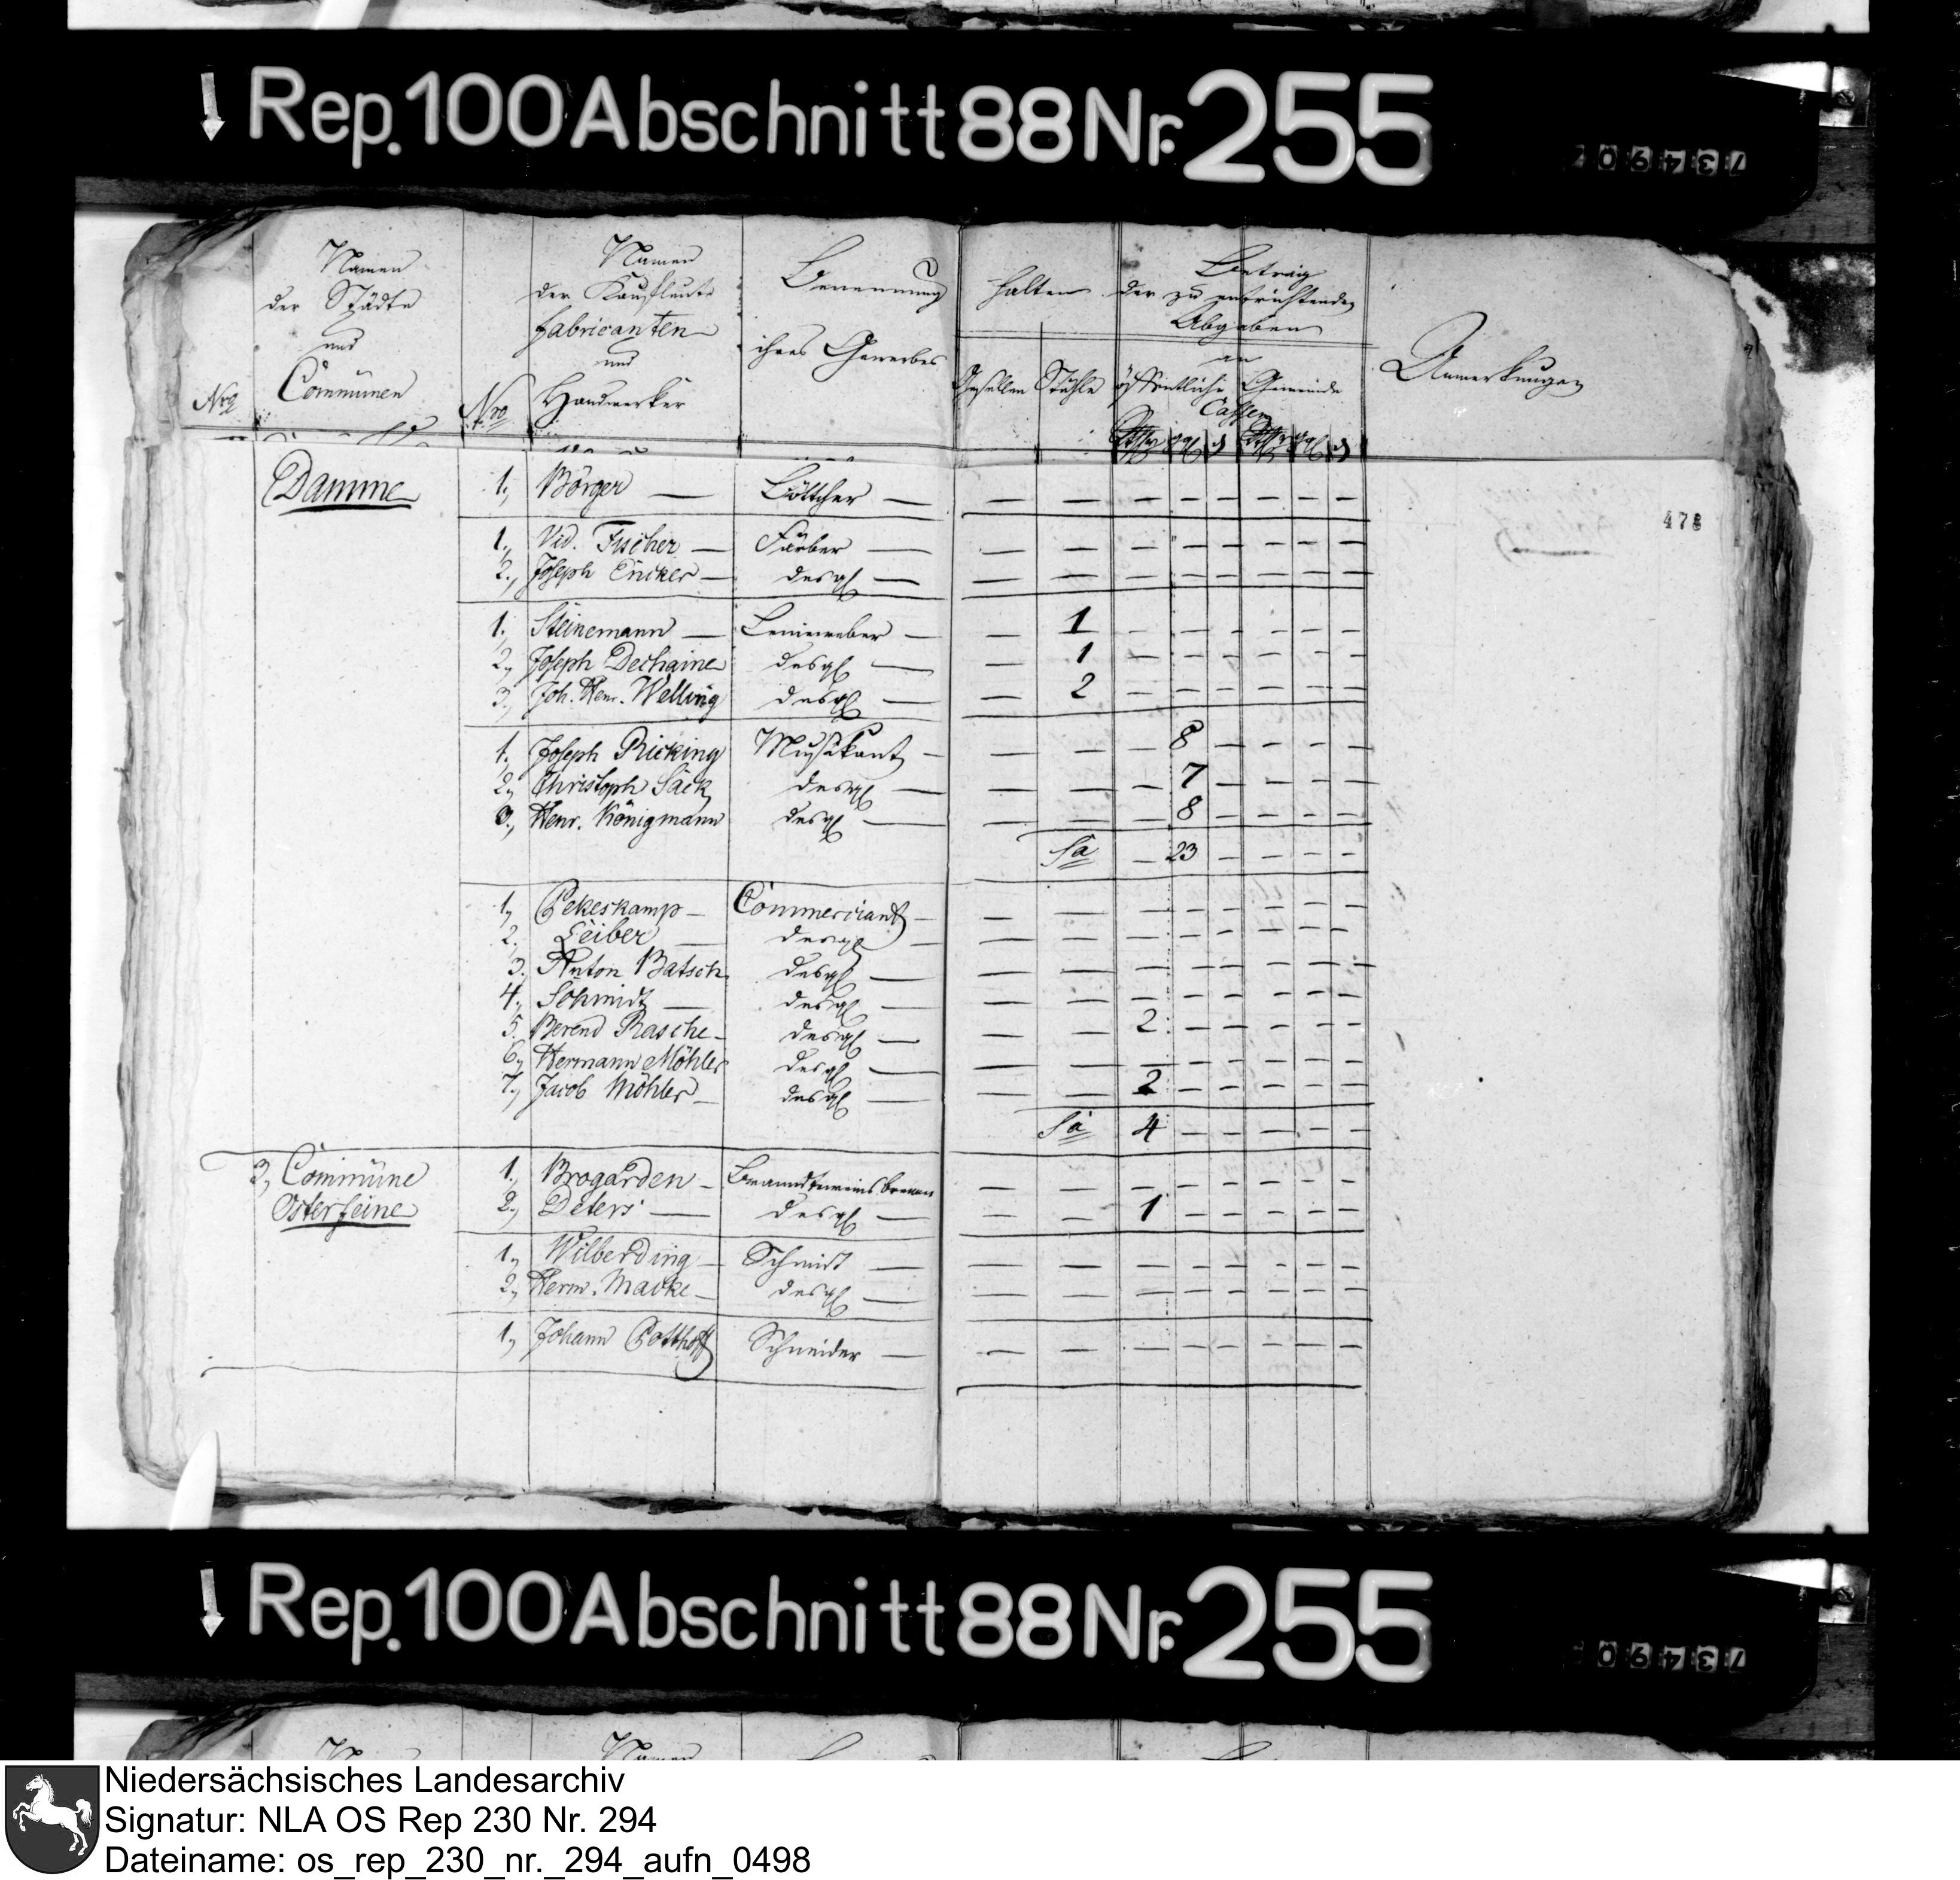 Rep. 100 Abschnitt 88 Nr. 255
734907
Nro
Namen
der Städte
und
Communen
Nro
Namen
der Kaufleute
Fabricanten
und
Handwerker
Benennung
ihres Gewerbes
halten
Gesellen Stühle
Betrag
der zu entrichtenden
Abgaben
an
öffentliche Gemeinde
Cassen
Anmerkungen
478
Damme 1., Börger — Böttcher — — — — — — — — —
1., Vid. Fischer — Färber — — — — — — — — —
2., Joseph Encker — desgl — — — — — — — — —
1., Steinemann — Leineweber — — 1 — — — — — —
2., Joseph Dechaine desgl — — 1 — — — — — —
3., Joh. Henr. Welling desgl — — 2 — — — — — —
1., Joseph Ricking Musikant — — — — 8 — — — —
2., Christoph Sack desgl — — — — 7 — — — —
3., Henr. Königmann desgl — — — — 8 — — — —
Sa — 23 — — — —
1., Pekeskamp — Commerciant — — — — — — — — —
2., Leiber — desgl — — — — — — — — —
3., Anton Batsch desgl — — — — — — — — —
4., Schmidt — desgl — — — — — — — — —
5., Berend Rasche — desgl — — — 2 — — — — —
6., Hermann Möhler desgl — — — — — — — — —
7., Jacob Möhler — desgl — — — 2 — — — — —
Sa 4 — — — — —
3, Commune 1., Brogarden — Brandtweinsbrenner — — — — — — — —
Osterfeine 2., Deters — desgl — — — 1 — — — — —
1., Wilberding — Schmidt — — — — — — — — —
2., Herm. Macke — desgl — — — — — — — — —
1., Johann Potthoff Schneider — — — — — — — — —
Rep. 100 Abschnitt 88 Nr. 255
734907
Namen
Niedersächsisches Landesarchiv
Signatur: NLA OS Rep 230 Nr. 294
Dateiname: os_rep_230_nr._294_aufn_0498